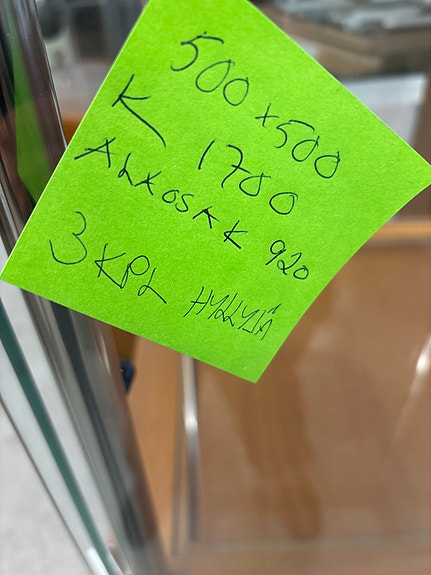 500 x 500
K 1700
ALAOSA K 920
3 KPL HYLLYJÄ